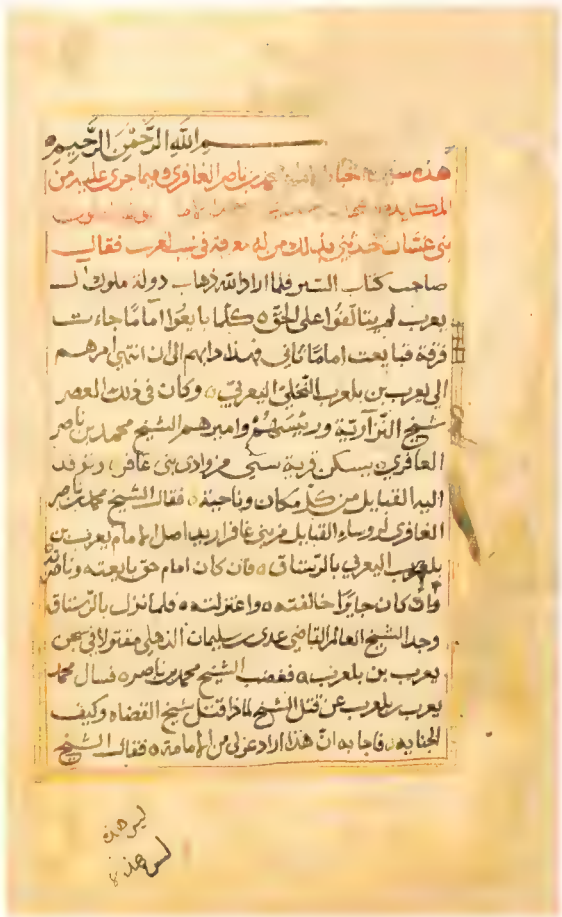 بسم الله الرحمن الرحيم
هذه محمد بن ناصر الغافري وفيما جرى عليه من
المكيده
بني غسان حدثني بذلك من له معرفة في نسب العرب فقال
صاحب كتاب السير فلما اراد الله ذهاب دولة ملوك ال
يعرب لم يتالفوا على الحق ه كلما بايعوا اماما جاءت
فرقة فبايعت اماما ثاني فهذا دابهم الى ان انتهى امرهم
الى يعرب بن بلعرب اليعربي ه وكان في ذلك العصر
شيخ النزارية ورئيسهم واميرهم الشيخ محمد بن ناصر
الغافري ه يسكن قرية من وادي بني غافر ه وتوفد
اليه القبايل من كل مكان وناحية ه فقال الشيخ محمد بن ناصر
الغافري لروساء القبايل من بني غافر اريد اصل الامام يعرب بن
بلعرب اليعربي بالرستاق ه فان كان امام حق بايعته وناصرته
وان كان جايرا خالفته ه واعتزلته ه فلما نزل بالرستاق
وجد الشيخ العالم القاضي عدي بن سليمان الذهلي مقتولا في سجن
يعرب بن بلعرب ه فغضب الشيخ محمد بن ناصر ه فسال محمد
يعرب بن بلعرب عن قتل الشيخ لماذا قتل شيخ القضاه وكيف
الجنايه ه فاجابه ان هذا اراد عزلي من الامامة ه فقال الشيخ
ليس هذه
ليس هذه